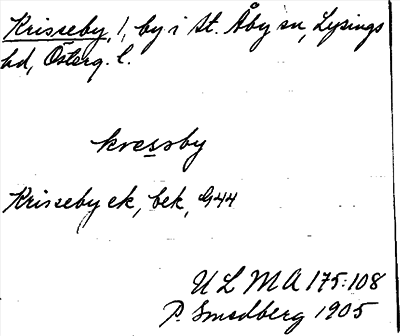 Krisseby, 1, by i St. Åby sn, Lysings
hd, Österg. l.
kressby
Krisseby ek, bek, G44
ULMA 175:108
P. Smedberg 1905